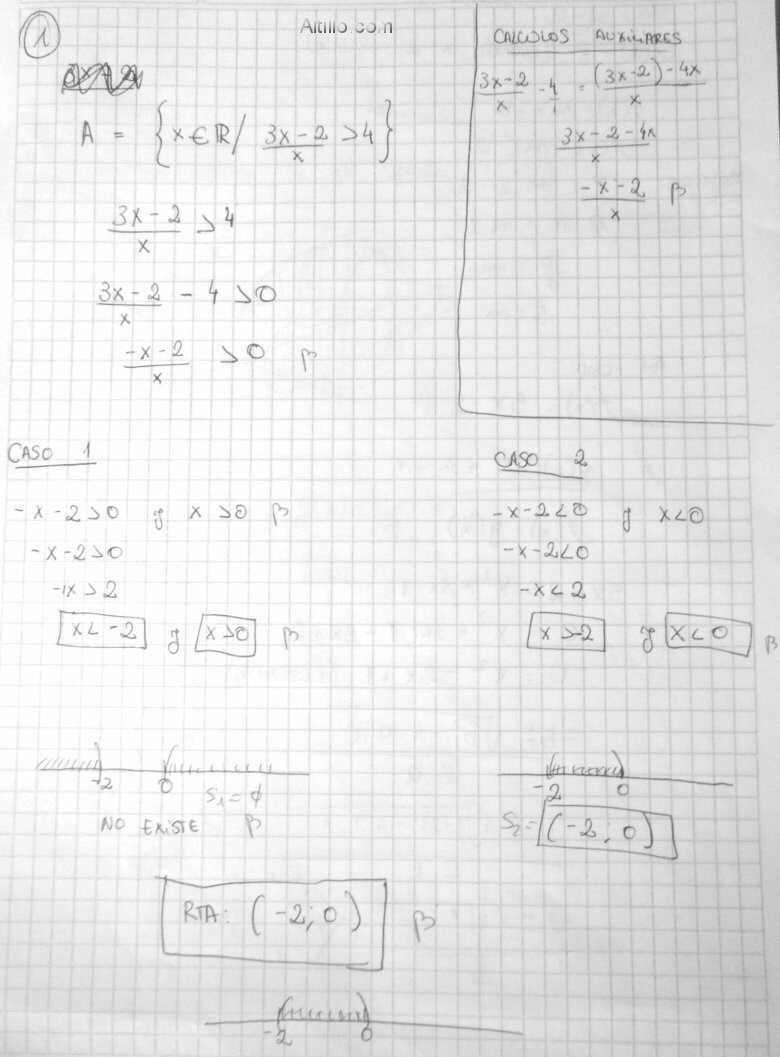 Altillo.com
1
A = {x ∈ ℝ / (3x-2)/x > 4}
(3x-2)/x > 4
(3x-2)/x - 4 > 0
(-x-2)/x > 0 β
CALCULOS AUXILIARES
(3x-2)/x - 4/1 = ((3x-2)-4x)/x
(3x-2-4x)/x
(-x-2)/x β
CASO 1
-x-2>0 y x>0 β
-x-2>0
-1x>2
x<-2 y x>0 β
-2 0
S₁=ϕ
NO EXISTE β
CASO 2
-x-2<0 y x<0
-x-2<0
-x<2
x>-2 y x<0 β
-2 0
S₂=(-2; 0)
RTA: (-2; 0) β
-2 0